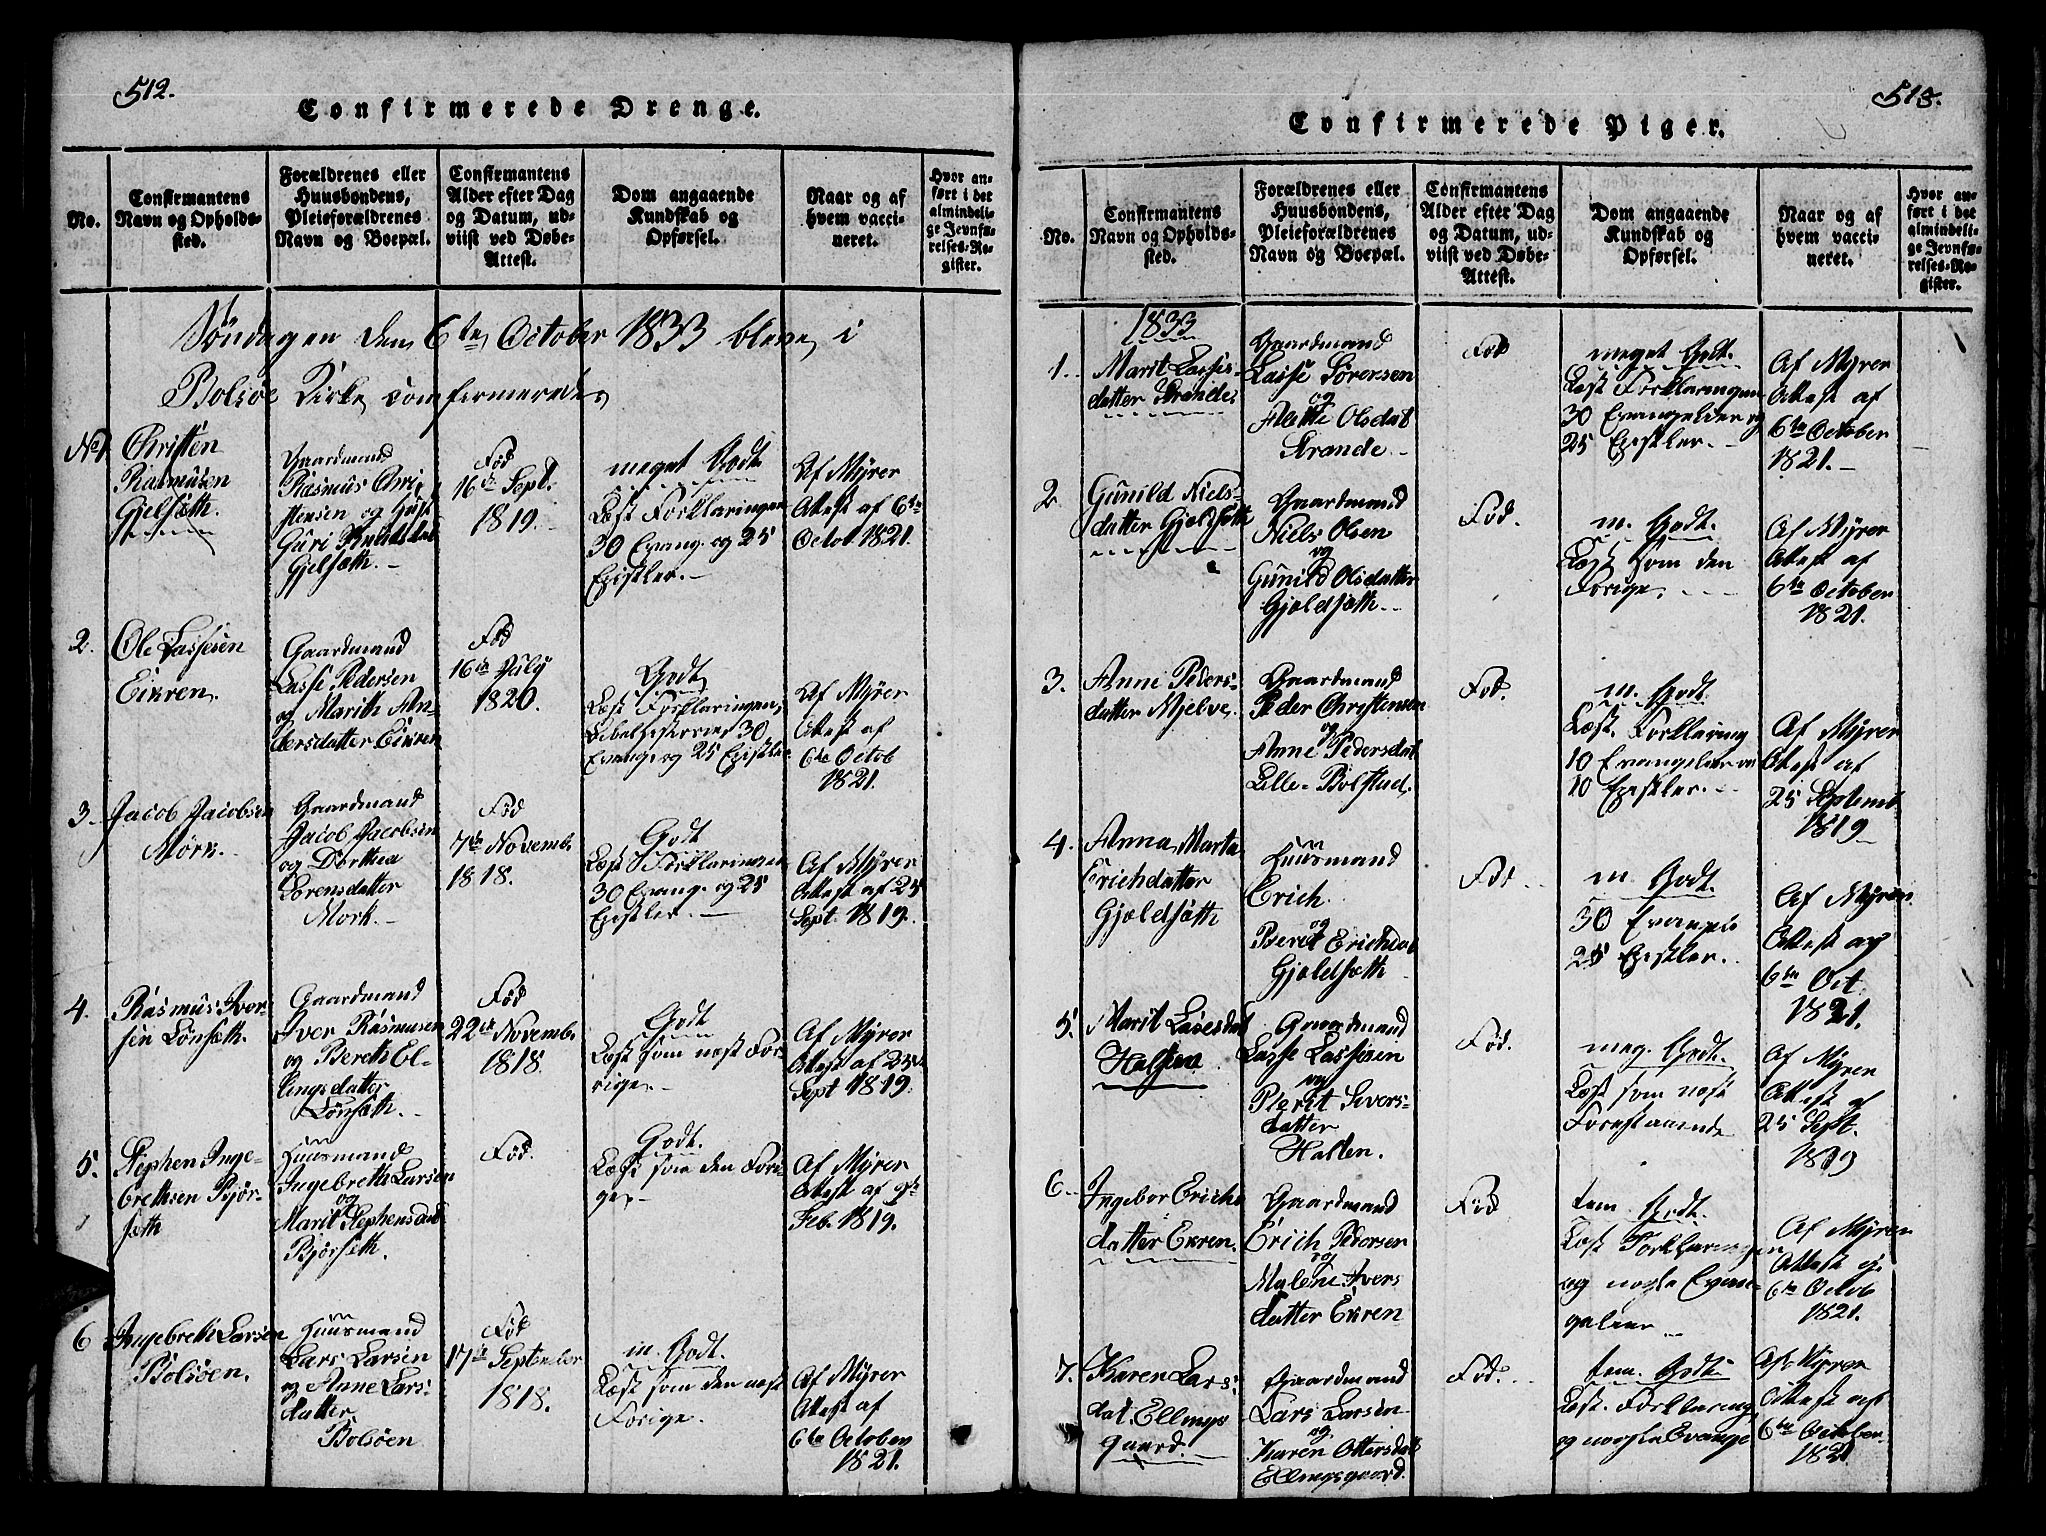 512.
Confirmerede Drenge.
No.
Confirmantens
Navn og Opholds-
sted.
Forældrenes eller
Huusbondens,
Pleieforældrenes
Navn og Boepæl.
Confirmantens
Alder efter Dag
og Datum, ud-
viist ved Døbe-
Attest.
Dom angaaende
Kundskab og
Opførsel.
Naar og af
hvem vacci-
neret.
Hvor an-
ført i det
almindeli-
ge Jevnfø-
relses-Re-
gister.
Søndagen den 6te October 1833 bleve i
Bolsöe Kirke comfirmerede
No 1
Christen
Rasmusen
Gjelsæth.
Gaardmand
Rasmus Chri
stensen og
Guri Knudsdat
Gjelsæth.
Fød
16de Sept.
1819.
meget Godt
Læst Forklaringen
30 Evang. og 25
Epistler.
Af Myrer
Attest af 6te
Octob 1821.
2.
Ole Lassesen
Eikren.
Gaardmand
Lasse Pedersen
og Marith An-
dersdatter Eikren
Fød
16de July
1820.
Godt
Læst Forklaringen,
30
Evang. og 25 Epistler
Af Myrer
Attest af
6te Octob
1821.
3.
Jacob Jacobsen
Mörk.
Gaardmand
Jacob Jacobsen
og Dorthea
Lorensdatter
Mork.
Fød
7de Novemb.
1818.
Godt
Læst Forklaringen
30 Evang. og 25
Epistler.
Af Myrer
Attest af 25
Sept 1819.
4.
Rasmus Iver-
sen Lönsæth.
Gaardmand
Iver Rasmusen
og Bereth El-
lingsdatter
Lönsæth.
Fød
22de Novemb.
1818.
Godt
Læst som næst For-
rige.
Af Myrer
Attest af 25
Sept 1819.
5.
Stephen Inge-
brethsen Björ-
sæth
Huusmand
Ingebreth Larsen
og
Marit Stephensdat
Bjórsæth.
Fød.
Godt.
Læst som den Fori-
ge.
Af Myrer
Attest af 9de
Feb. 1819.
6
Ingebreth Larsen
Bolsöen.
Huusmand
Lars Larsen
og Anne Lars-
datter
Bolsöen
Fød
17de September
1818.
m. Godt.
Læst som den næst
Forige.
Af Myrer
Attest af
6te October
1821.
513.
Confirmerede Piger.
No.
Confirmantens
Navn og Opholds-
sted.
Forældrenes eller
Huusbondens,
Pleieforældrenes
Navn og Boepæl.
Confirmantens
Alder efter Dag
og Datum, ud-
viist ved Døbe-
Attest.
Dom angaaende
Kundskab og
Opførsel.
Naar og af
hvem vacci-
neret.
Hvor an-
ført i det
almindeli-
ge Jevnfø-
relses-Re-
gister.
1833
1.
Marit Lasses-
datter Strande
Gaardmand
Lasse Sörensen
og
Olsdat
Strande
Fød
meget Godt.
Læst Forklaringen
30 Evangelier og
25 Epistler.
Af Myrer
Attest af
6te October
1821.
2.
Gunild Niels-
datter Gjeldsæth
Gaardmand
Niels Olsen
og
Gunild Olsdatter
Gjeldsæth.
Fød.
m. Godt.
Læst som den
Forige.
Af Myrer
Attest af
6te October
1821.
3.
Anne Peders-
datter Mjelve.
Gaardmand
Peder Christensen
og
Anne Pedersdat
Lille-Bolstad.
Fød.
m. Godt
Læst. Forklaring
10 Evangelier og
10 Epistler.
Af Myrer
Attest af
25 Septemb.
1819
4.
Anna Marta
Erichdatter
Gjeldsæth
Huusmand
Erich
og
Berit Erichdat
Gjeldsæth
Fød
m. Godt.
30 Evange
25 Epistler.
Af Myrer
Attest af
6te Oct
1821.
5.
Marit Lasesdat
Halsen
Gaardmand
Lasse Lassesen
og
Berit Sivers-
datter
Halsen.
Fød.
meg. Godt.
Læst som næst
Forestaaende
Af Myrer
Attest af
25 Sept.
1819
6.
Ingebor Erichs
datter Ekren.
Gaardmand
Erich Pedersen
og
Malene Ivers
datter Ekren
Fød
tem. Godt.
Læst Forklaringen
og nogle Evan-
gelier
Af Myrer
Attest af
6te Octob
1821.
7.
Karen Lars-
dat. Ellings
gaard.
Gaardmand
Lars Larsen
og
Karen Ottersdat
Ellingsgaard.
Fød.
tem. Godt
Læst. Forklaring,
og nogle Evange
Af Myrer
Attest af
6te October
1821